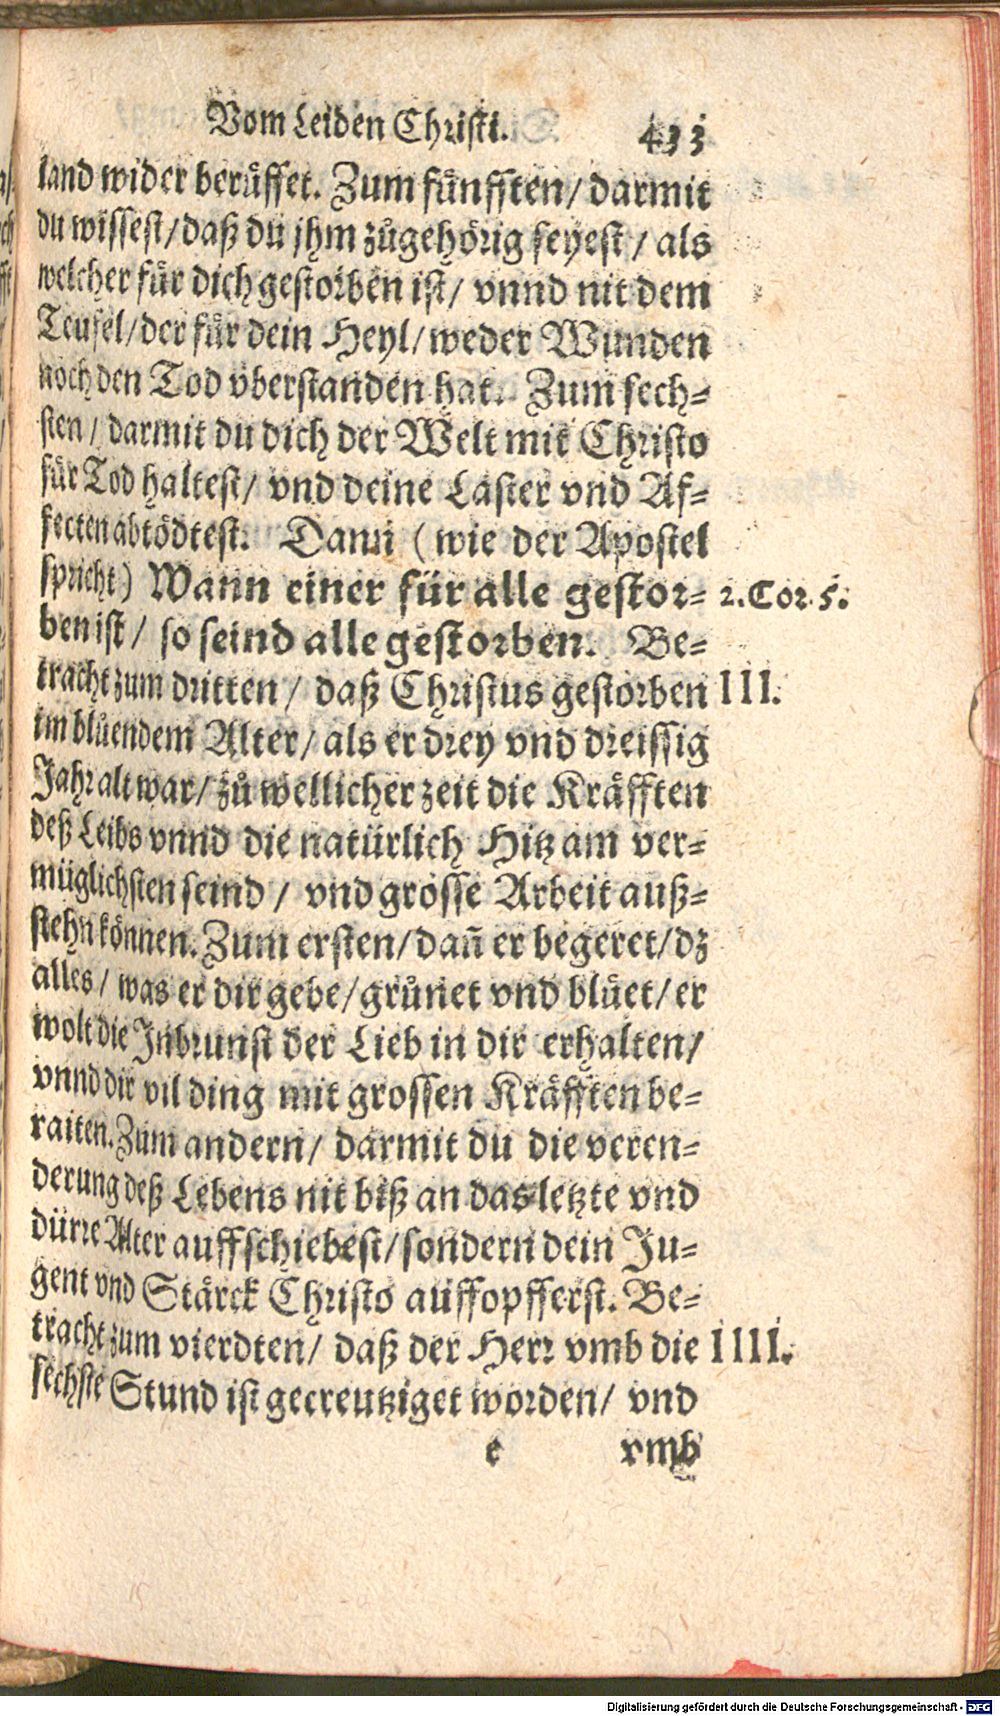 Vom Leiden Christi. 433
land wider berůffet. Zum fünfften/ darmit
du wissest/ daß du jhm zůgehörig seyest/ als
welcher für dich gestorben ist/ vnnd nit dem
Teufel/ der für dein Heyl/ weder Wunden
noch den Tod vberstanden hat. Zum sech-
sten/ darmit du dich der Welt mit Christo
für Tod haltest/ vnd deine Laster vnd Af-
fecten abtödtest. Dann (wie der Apostel
spricht) Wann einer für alle gestor- 2. Cor. 5.
ben ist/ so seind alle gestorben. Be-
tracht zum dritten/ daß Christus gestorben III.
im blüendem Alter/ als er drey vnd dreissig
Jahr alt war/ zů wellicher zeit die Kräfften
deß Leibs vnnd die natürlich Hitz am ver-
müglichsten seind/ vnd grosse Arbeit auß-
stehn können. Zum ersten/ dañ er begeret/ dz
alles/ was er dir gebe/ grůnet vnd blüet/ er
wolt die Jnbrunst der Lieb in dir erhalten/
vnnd dir vil ding mit grossen Kräfften be-
raiten. Zum andern/ darmit du die veren-
derung deß Lebens nit biß an das letzte vnd
dürre Alter auffschiebest/ sondern dein Ju-
gent vnd Stärck Christo auffopfferst. Be-
tracht zum vierdten/ daß der Herr vmb die IIII.
sechste Stund ist gecreutziget worden/ vnd
e vmb
Digitalisierung gefördert durch die Deutsche Forschungsgemeinschaft - DFG